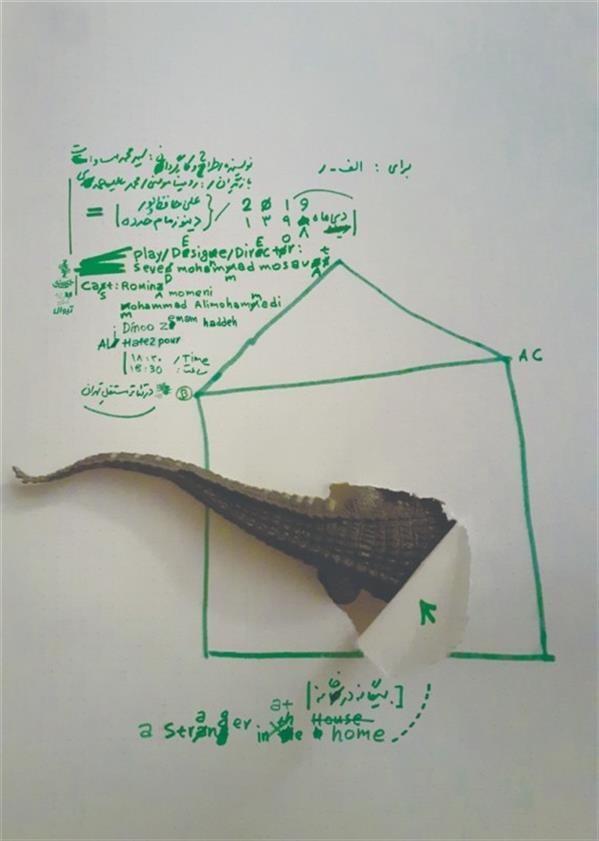 برای : الف - ر
نویسنده/طراح و کارگردان : سید محمد مساوات
بازیگران : رومینا مومنی / محمد علیمحمدی
= علی حافظ‌پور
دینو زمام‌حدده
2019
۱۳۹۸
دی‌ماه
play/Designe/Director:
Seyed mohammad mosavat
Cast: Romina
momeni
mohammad Alimohammadi
Dinoo Zemam haddeh
Ali Hafezpour
۱۸:۳۰ / Time
18:30 ساعت :
در تئاتر مستقل تهران
B
AC
at [بیگانه در خانه]
a Stranger in the House home